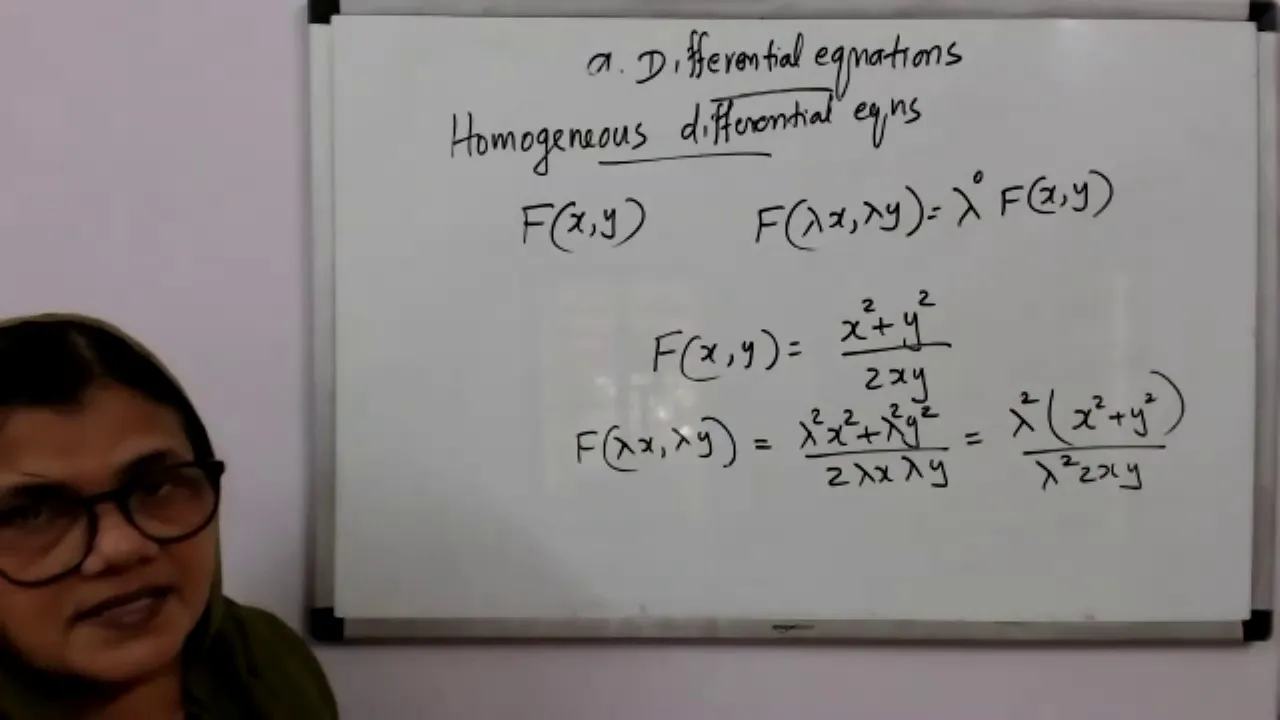 a. Differential eqnations
Homogeneous differential eqns
F(x,y) F(λx,λy)= λ⁰ F(x,y)
F(x,y)= x²+y² / 2xy
F(λx,λy) = λ²x²+λ²y² / 2λxλy = λ²(x²+y²) / λ²2xy